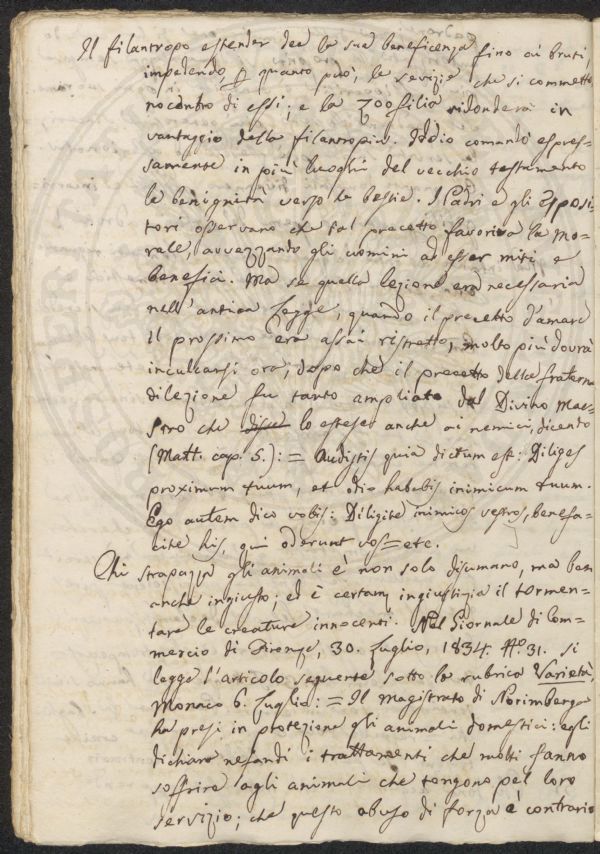 Il filantropo estender dee la sua beneficenza fino ai bruti,
impedendo p quanto può, le sevizie che si commetto
no contro di essi; e la zoofilia ridonderà in
vantaggio della filantropia. Iddio comandò espres-
samente in più luoghi del vecchio testamento
la benignità verso le bestie. I Padri e gli Esposi-
tori osservano che tal precetto favoriva la mo-
rale, avvezzando gli uomini ad esser miti e
benefici. Ma se quella lezione era necessaria
nell'antica Legge, quando il precetto d'amare
il prossimo era assai ristretto, molto più dovrà
inculcarsi ora, dopo che il precetto della fraterna
dilezione fu tanto ampliato dal Divino Mae-
stro che lo estese anche ai nemici, dicendo
(Matt. cap. 5.): = Audistis quia dictum est: Diliges
proximum tuum, et odio habebis inimicum tuum.
Ego autem dico vobis: Diligite inimicos vestros, benefa-
cite his, qui oderunt vos = etc.
Chi strapazza gli animali è non solo disumano, ma ben
anche ingiusto; ed è certam ingiustizia il tormen-
tare le creature innocenti. Nel Giornale di Com-
mercio di Firenze, 30. Luglio, 1834. N.º 31. si
legge l'articolo seguente sotto la rubrica Varietà,
Monaco 6. Luglio: = Il Magistrato di Norimberga
ha presi in protezione gli animali domestici: egli
dichiara nefandi i trattamenti che molti fanno
soffrire agli animali che tengono pel loro
servizio; che questo abuso di forza è contrario